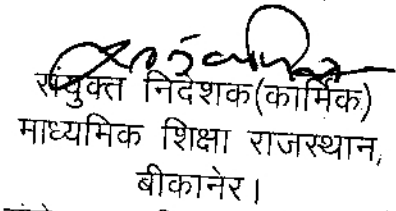 संयुक्त निदेशक(कार्मिक)
माध्यमिक शिक्षा राजस्थान,
बीकानेर।